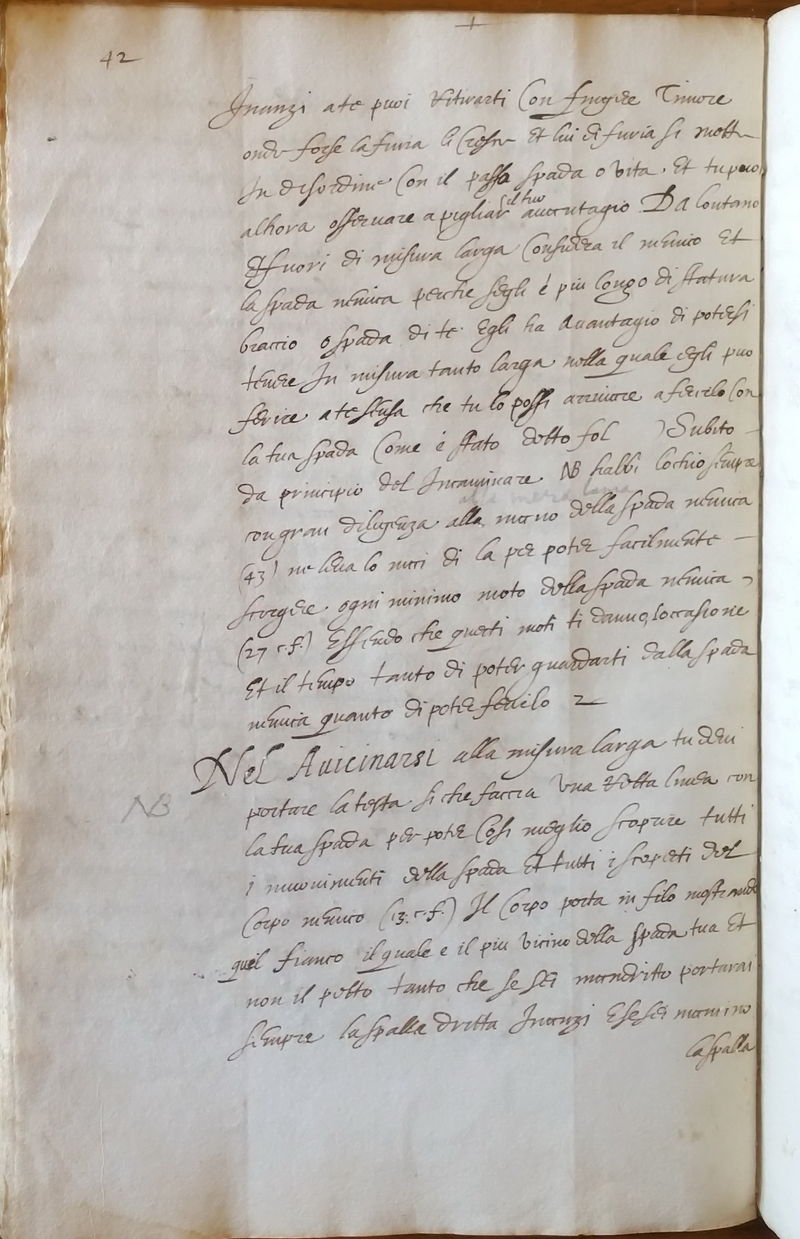 42
Inanzi a te puoi ritirarti con fingere Timore
onde forse la furia li cresce et lui di furia si mette
In disordine con il passo spada o vita. Et tu puoi
il tuo
alhora osservare a pigliar avantagio Da lontano
Et fuori di misura larga considera il nemico et
la spada nemica perche segli é piu longo di statura
braccio o spada di te Egli ha Avantagio di potersi
tenere In misura tanto larga nella quale egli puo
ferire a te senza che tu lo possi arrivare a ferirlo con
la tua spada Come é stato detto fol ) Subito
da principio del Incaminare NB habbi lochio sempre
alla meza lama
con gran diligenza alla mano della spada nemica
(43) ne leva lo mai di la per poter facilmente
scorgere ogni minimo moto della spada nemica
(27 c.f.) Essendo che questi moti ti danno loccasione
Et il tempo tanto di poter guardarti dalla spada
nemica quanto di poter ferirlo
Nel Avicinarsi alla misura larga tu devi
NB
portare la testa si che faccia una retta linea con
la tua spada per poter cosi meglio scoprire tutti
i movimenti della spada et tutti i scoperti del
Corpo nemico (13. c.f.) Il Corpo porta in filo mostrando
quel fianco il quale e il piu vicino della spada tua Et
non il petto tanto che se sei mandritto portarai
sempre la spalla dritta Inanzi E se sei mancino
la spalla